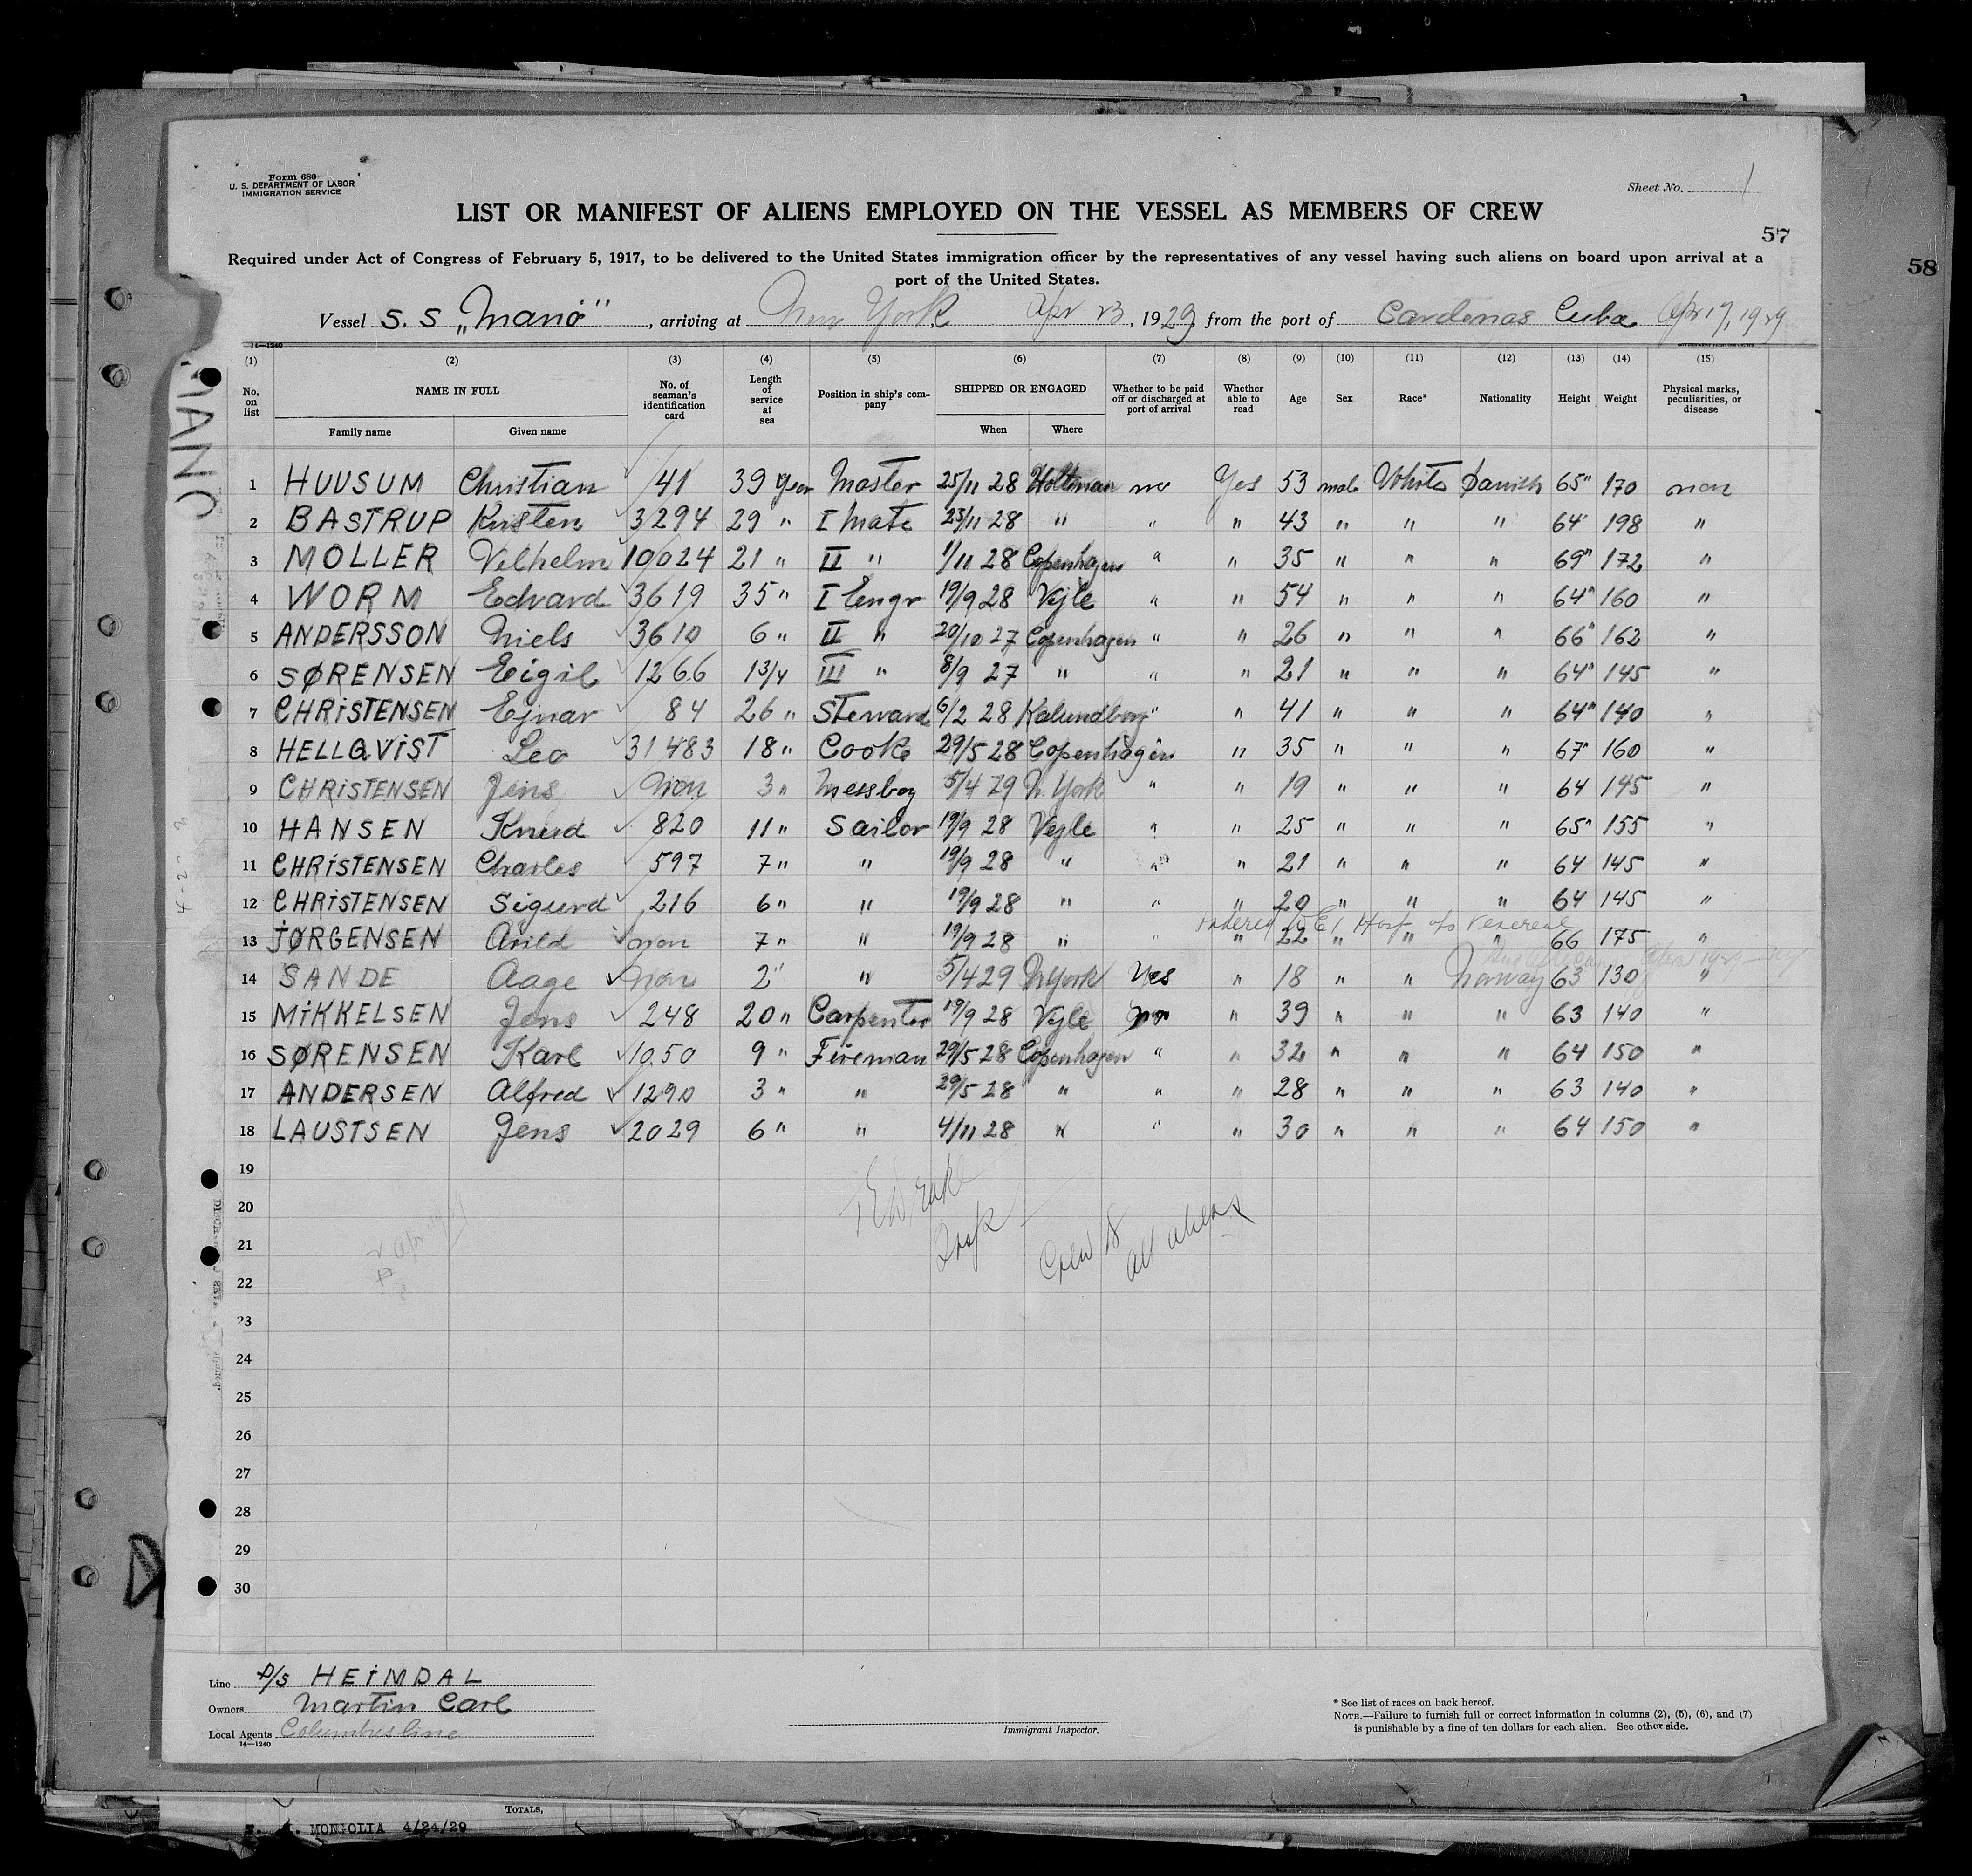 Form 680
U. S. DEPARTMENT OF LABOR
IMMIGRATION SERVICE
Sheet No. 1
LIST OR MANIFEST OF ALIENS EMPLOYED ON THE VESSEL AS MEMBERS OF CREW
57
58
Required under Act of Congress of February 5, 1917, to be delivered to the United States immigration officer by the representatives of any vessel having such aliens on board upon arrival at a
port of the United States.
Vessel S. S „Manö", arriving at New York Apr 23, 1929, from the port of Cardenas Cuba Apr 17, 1929
14—1240
(1) (2) (3) (4) (5) (6) (7) (8) (9) (10) (11) (12) (13) (14) (15)
No. on list NAME IN FULL Family name Given name No. of seaman's identification card Length of service at sea Position in ship's company SHIPPED OR ENGAGED When Where Whether to be paid off or discharged at port of arrival Whether able to read Age Sex Race* Nationality Height Weight Physical marks, peculiarities, or disease
MANO
1 HUUSUM Christian 41 39 year Master 25/11 28 Holtenau no Yes 53 male White Danish 65" 170 non
2 BASTRUP Kristen 3294 29 " I Mate 23/11 28 " " " 43 " " " 64" 198 "
3 MOLLER Vilhelm 10024 21 " II " 1/11 28 Copenhagen " " 35 " " " 69" 172 "
4 WORM Edvard 3619 35 " I Engr 19/9 28 Vejle " " 54 " " " 64" 160 "
5 ANDERSSON Niels 3610 6 " II " 20/10 27 Copenhagen " " 26 " " " 66" 162 "
6 SØRENSEN Eigil 1266 1 3/4 III " 8/9 27 " " " 21 " " " 64" 145 "
7 CHRiSTENSEN Ejnar 84 26 " Steward 6/2 28 Kalundborg " " 41 " " " 64" 140 "
8 HELLQViST Leo 31483 18 " Cook 29/5 28 Copenhagen " 35 " " " 67" 160 "
9 CHRiSTENSEN Jens non 3 " Messboy 5/4 29 N. York " " 19 " " " 64 145 "
10 HANSEN Knud 820 11 " Sailor 19/9 28 Vejle " " 25 " " " 65" 155 "
11 CHRiSTENSEN Charles 597 7 " " 19/9 28 " " " 21 " " " 64 145 "
12 CHRiSTENSEN Sigurd 216 6 " " 19/9 28 " " " 20 " " " 64 145 "
ordered to E I Hosp Venereal
13 JØRGENSEN Arild non 7 " " 19/9 28 " " " 22 " " " 66 175 "
14 SANDE Aage non 2 " " 5/4 29 N York Yes " 18 " " Norway 63 130 "
15 MiKKELSEN Jens 248 20 " Carpenter 19/9 28 Vejle no " 39 " " " 63 140 "
16 SØRENSEN Karl 1050 9 " Fireman 29/5 28 Copenhagen " " 32 " " " 64 150 "
17 ANDERSEN Alfred 1290 3 " " 29/5 28 " " " 28 " " " 63 140 "
18 LAUSTSEN Jens 2029 6 " " 4/11 28 " " " 30 " " " 64 150 "
19
20
21
Insp
Crew 18
all aliens
22
23
24
25
26
27
28
29
30
Line D/S HEiMDAL
Owners Martin Carl
Local Agents Columbusline
14—1240
Immigrant Inspector.
* See list of races on back hereof.
NOTE.—Failure to furnish full or correct information in columns (2), (5), (6), and (7)
is punishable by a fine of ten dollars for each alien. See other side.
TOTALS,
MONGOLIA 4/24/29